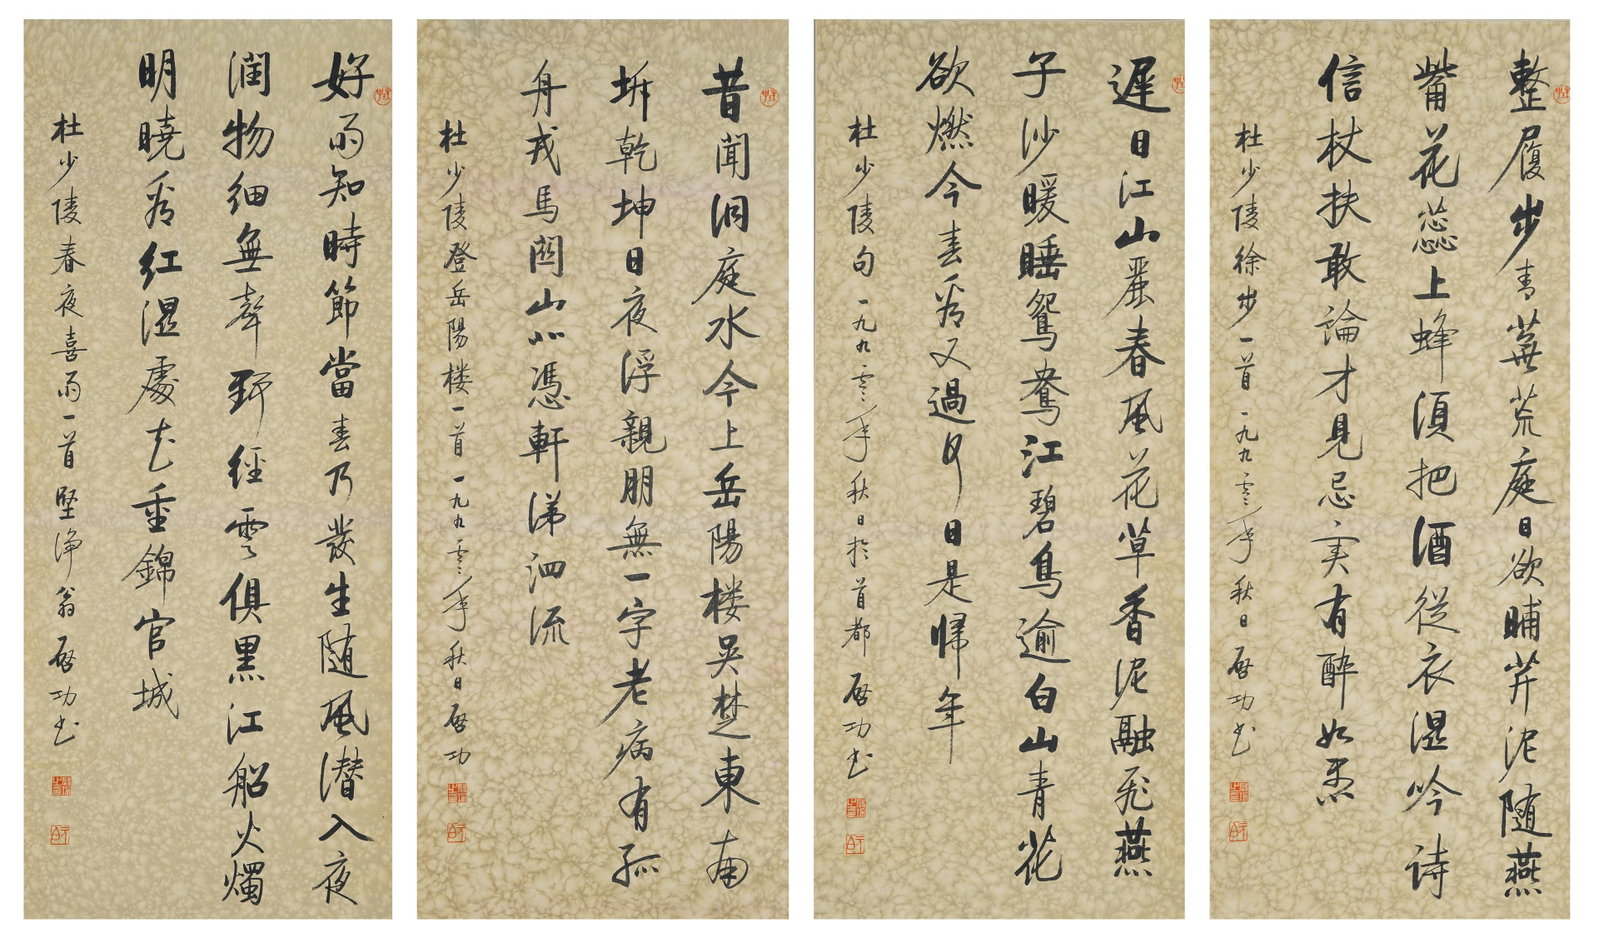 整履步青蕪荒庭日欲晡芹泥随燕
觜花蕊上蜂須把酒從衣湿吟诗
信杖扶敢論才見忌实有醉如愚
杜少陵徐步一首一九九零年秋日启功书
遲日江山麗春風花草香泥融飛燕
子沙暖睡鴛鴦江碧鳥逾白山青花
欲燃今春看又過何日是歸年
杜少陵句一九九零年秋日於首都启功书
昔聞洞庭水今上岳陽楼吴楚東南
坼乾坤日夜浮親朋無一字老病有孤
舟戎馬關山北憑軒涕泗流
杜少陵登岳陽楼一首一九九零年秋日启功
好雨知時節當春乃發生随風潜入夜
潤物细無聲野徑雲俱黑江船火燭
明曉看紅湿處花重錦官城
杜少陵春夜喜雨一首堅净翁启功书